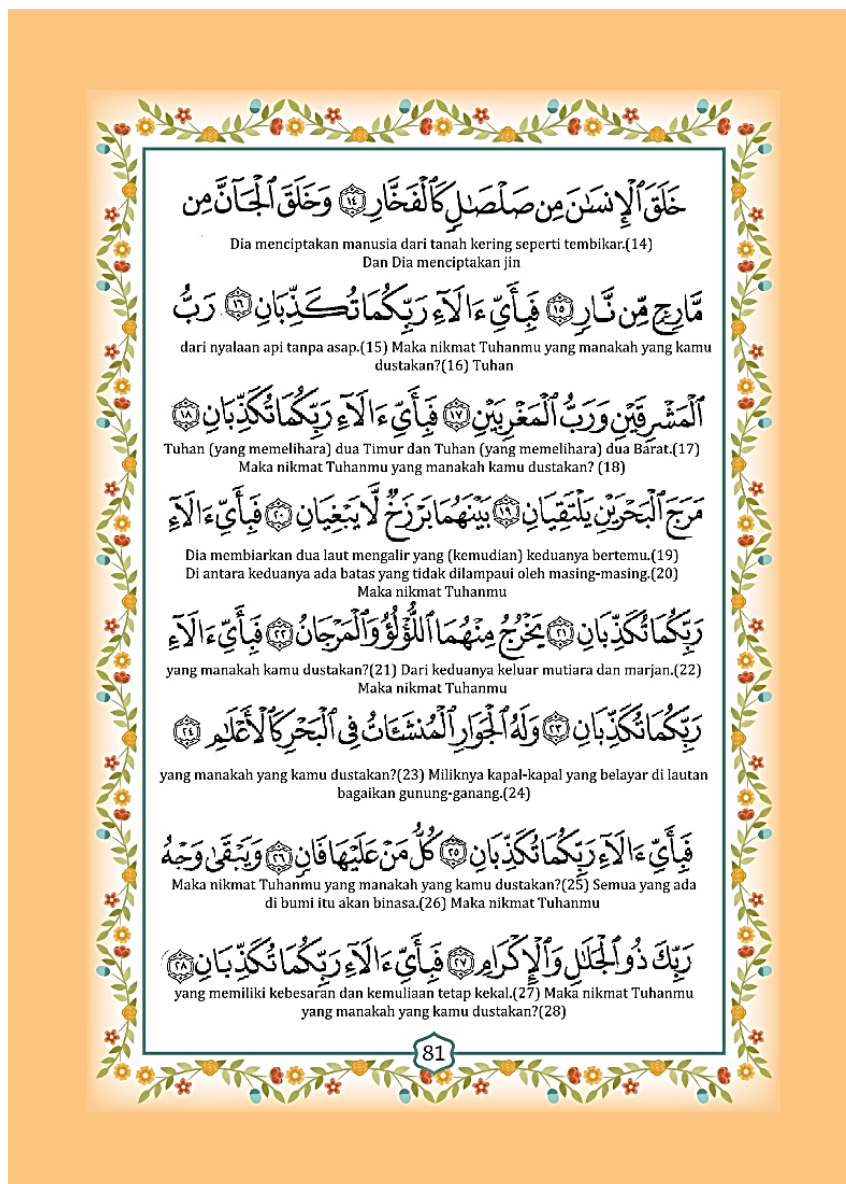 خَلَقَ ٱلْإِنسَٰنَ مِن صَلْصَٰلٍ كَٱلْفَخَّارِ ١٤ وَخَلَقَ ٱلْجَآنَّ مِن
Dia menciptakan manusia dari tanah kering seperti tembikar.(14)
Dan Dia menciptakan jin
مَّارِجٍ مِّن نَّارٍ ١٥ فَبِأَىِّ ءَالَآءِ رَبِّكُمَا تُكَذِّبَانِ ١٦ رَبُّ
dari nyalaan api tanpa asap.(15) Maka nikmat Tuhanmu yang manakah yang kamu
dustakan?(16) Tuhan
ٱلْمَشْرِقَيْنِ وَرَبُّ ٱلْمَغْرِبَيْنِ ١٧ فَبِأَىِّ ءَالَآءِ رَبِّكُمَا تُكَذِّبَانِ ١٨
Tuhan (yang memelihara) dua Timur dan Tuhan (yang memelihara) dua Barat.(17)
Maka nikmat Tuhanmu yang manakah kamu dustakan? (18)
مَرَجَ ٱلْبَحْرَيْنِ يَلْتَقِيَانِ ١٩ بَيْنَهُمَا بَرْزَخٌ لَّا يَبْغِيَانِ ٢٠ فَبِأَىِّ ءَالَآءِ
Dia membiarkan dua laut mengalir yang (kemudian) keduanya bertemu.(19)
Di antara keduanya ada batas yang tidak dilampaui oleh masing-masing.(20)
Maka nikmat Tuhanmu
رَبِّكُمَا تُكَذِّبَانِ ٢١ يَخْرُجُ مِنْهُمَا ٱللُّؤْلُؤُ وَٱلْمَرْجَانُ ٢٢ فَبِأَىِّ ءَالَآءِ
yang manakah kamu dustakan?(21) Dari keduanya keluar mutiara dan marjan.(22)
Maka nikmat Tuhanmu
رَبِّكُمَا تُكَذِّبَانِ ٢٣ وَلَهُ ٱلْجَوَارِ ٱلْمُنشَـَٔاتُ فِى ٱلْبَحْرِ كَٱلْأَعْلَٰمِ ٢٤
yang manakah yang kamu dustakan?(23) Miliknya kapal-kapal yang belayar di lautan
bagaikan gunung-ganang.(24)
فَبِأَىِّ ءَالَآءِ رَبِّكُمَا تُكَذِّبَانِ ٢٥ كُلُّ مَنْ عَلَيْهَا فَانٍ ٢٦ وَيَبْقَىٰ وَجْهُ
Maka nikmat Tuhanmu yang manakah yang kamu dustakan?(25) Semua yang ada
di bumi itu akan binasa.(26) Maka nikmat Tuhanmu
رَبِّكَ ذُو ٱلْجَلَٰلِ وَٱلْإِكْرَامِ ٢٧ فَبِأَىِّ ءَالَآءِ رَبِّكُمَا تُكَذِّبَانِ ٢٨
yang memiliki kebesaran dan kemuliaan tetap kekal.(27) Maka nikmat Tuhanmu
yang manakah yang kamu dustakan?(28)
81